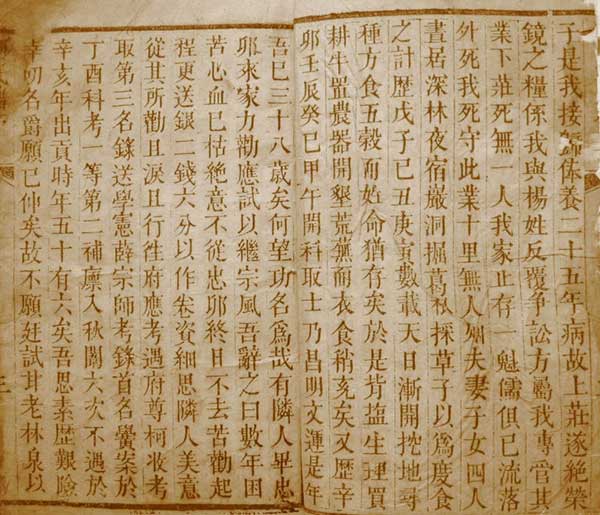 子是我接歸俸養二十五年病故上莊遂絶榮
鏡之糧係我與楊姓反覆爭訟方屬我專管其
業下莊死無一人我家止存一魁儒俱已流落
外死我死守此業十里無人烟夫妻子女四人
晝居深林夜宿巖洞掘葛根採草子以爲度食
之計歷戊子己丑庚寅數載天日漸開挖地尋
種方食五穀而姓命猶存矣於是背塩生理買
耕牛置農器開墾荒蕪而衣食稍充矣又歷辛
卯壬辰癸巳甲午開科取士乃昌明文運是年
吾已三十八歲矣何望功名爲哉有隣人畢忠
卯來家力勸應試以繼宗風吾辭之曰數年困
苦心血已枯絶意不從忠卯終日不去苦勸起
程更送銀二錢六分以作卷資細思隣人美意
從其所勸且淚且行徃府應考遇府尊柯收考
取第三名錄送學憲薛宗師考錄首名黌案於
丁酉科考一等第二補廪入秋闈六次不遇於
辛亥年出貢時年五十有六矣吾思素歷艱險
幸叨名爵願已仲矣故不願廷試甘老林泉以